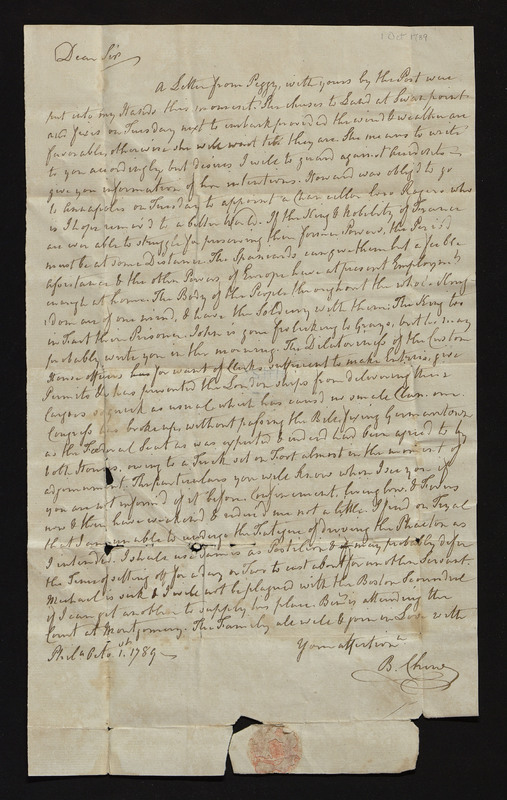 1 Oct 1789
Dear Sir
A Letter from Peggy, with yours by the Post were
put into my Hands this moment. She chuses to Land at Swan point
and fixes on Tuesday next to embark provided the wind & weather are
favorable, otherwise she will wait till they are. She means to write
to you accordingly, but desires I will to guard against Accidents
give you information of her intentions. Howard was obliged to go
to Annapolis on Tuesday to appoint a Chancellor Coro Rogers who
is I hope remov'd to a better World. If the King & Nobility of France
are ever able to struggle for preserving their former Powers, the Period
must be at some Distance. The Spaniards can give them but a feeble
Assistance & the other Powers of Europe have at present Employment
enough at home. The Body of the People throughout the whole King
=dom are of one mind, & have the Soldiery with them. The King too
in Fact their Prisoner. John is gone to Grays, but he may
probably write you in the morning. The Dilatoriness of the Custom
House officers for want of Clerks sufficient to make Entries, give
Permits &c has prevented the London ships from delivering their
Cargoes so quick as usual which has caused no small Clam. over.
Congress has broke up, without passing the Bill fixing Germantown
as the Federal Seat as was expected & indeed had been agreed to by
both Houses, owing to a Trick set on Foot almost in the moment of
adjournment. The particulars you will know when I see you if
you are not informed of it before. Confinement, living low & Fevers
now & then have weakened & reduced me not a little. I find on Tryal
that I am unable to undergo the Fatigue of driving the Phaeton as
I intended. I shall use as Postilion & may probably defer
the Time of setting off for a day or Two to cast about for another Servant.
Michael is sick & I will not be plagued with the Boston Scoundrel
if I can get another to supply his place. Benj. is attending the
Court at Montgomery. The Family are well & join in Love with
Your affectiona
Phila Octo. 1st. 1789
B. Chew